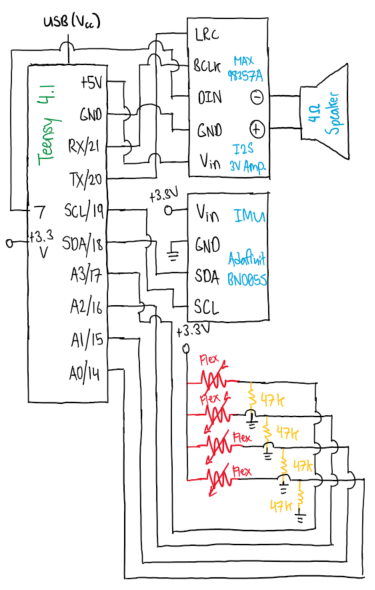 USB(Vcc)
Teensy 4.1
+5V
GND
RX/21
TX/20
SCL/19
SDA/18
A3/17
A2/16
A1/15
A0/14
7
+3.3
V
LRC
BCLK
DIN
GND
Vin
MAX
98357A
I2S
3V Amp.
-
+
4Ω
Speaker
+3.3V
Vin
GND
SDA
SCL
IMU
Adafruit
BN0055
+3.3V
Flex
Flex
Flex
Flex
47k
47k
47k
47k